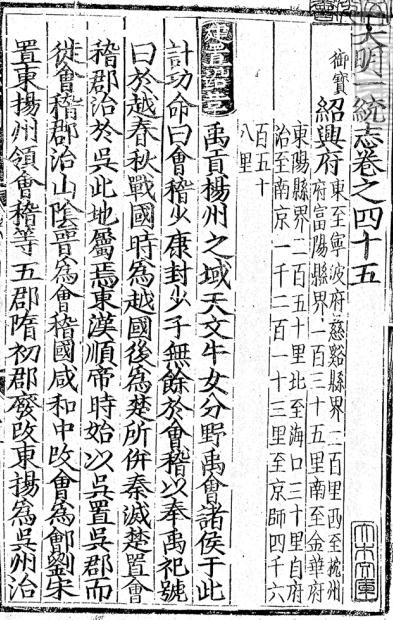 大明一統志卷之四十五
御寶
紹興府
東至寧波府慈谿縣界二百里西至杭州
府富陽縣界一百三十五里南至金華府
東陽縣界二百五十里北至海口三十里自府
治至南京一千二百一十三里至京師四千六
百五十
八里
建置沿革
禹貢揚州之域天文牛女分野禹會諸侯于此
計功命曰會稽少康封少子無餘於會稽以奉禹祀號
曰於越春秋戰國時為越國後為楚所併秦滅楚置會
稽郡治於吳此地屬焉東漢順帝時始以吳置吳郡而
徙會稽郡治山陰晉為會稽國咸和中改會為鄶劉宋
置東揚州領會稽等五郡隋初郡廢改東揚為吳州治
大木文庫